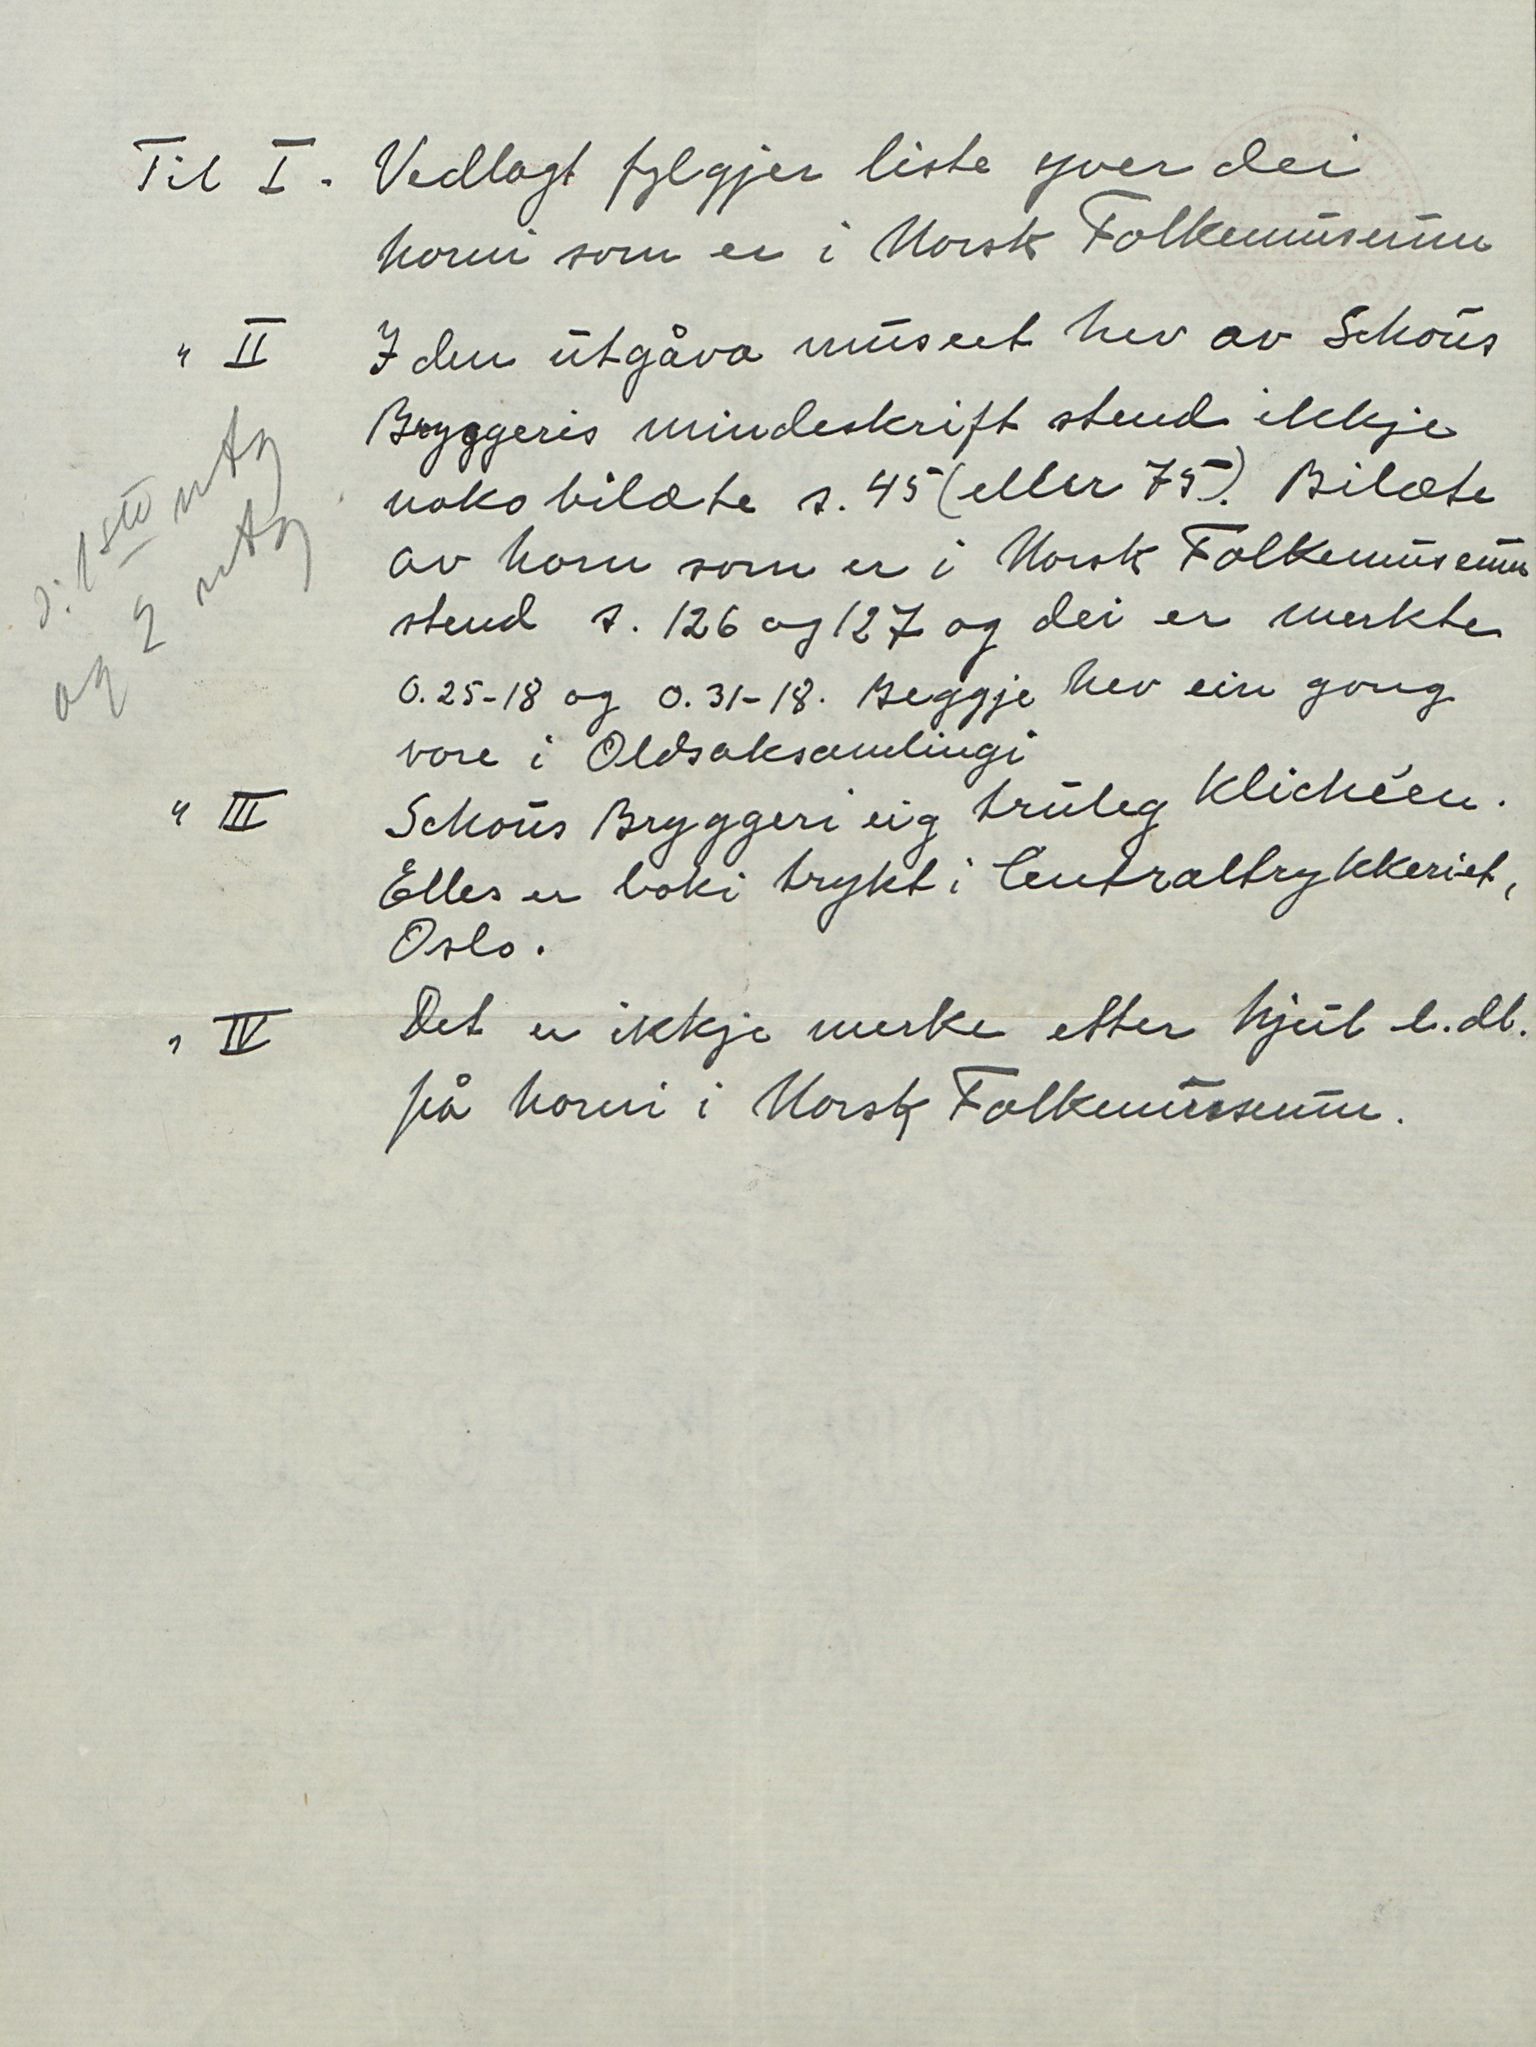 Til I. Vedlagt fylgjer liste yver dei
horni som er i Norsk Folkemuseum
" II I den utgåva museet hev av Schous
Bryggeris mindeskrift stend ikkje
noko bilæte s. 45 (eller 75). Bilæte
av horn som er i Norsk Folkemuseum
stend s. 126 og 127 og dei er merkte
O. 25-18 og O. 31-18. Beggje hev ein gong
vore i Oldsaksamlingi
" III Schous Bryggeri eig truleg klichéen.
Elles er boki trykt i Centraltrykkeriet,
Oslo.
" IV Det er ikkje merke etter hjul e. dl.
på horni i Norsk Folkemuseum.
1ste utg
og 2 utg